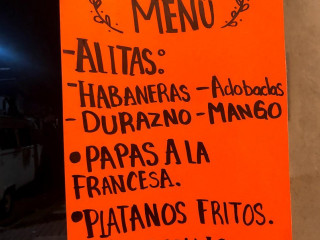 MENU
-ALITAS:
-HABANERAS -Adobadas
-DURAZNO -MANGO
•PAPAS A LA
FRANCESA.
•PLATANOS FRITOS.